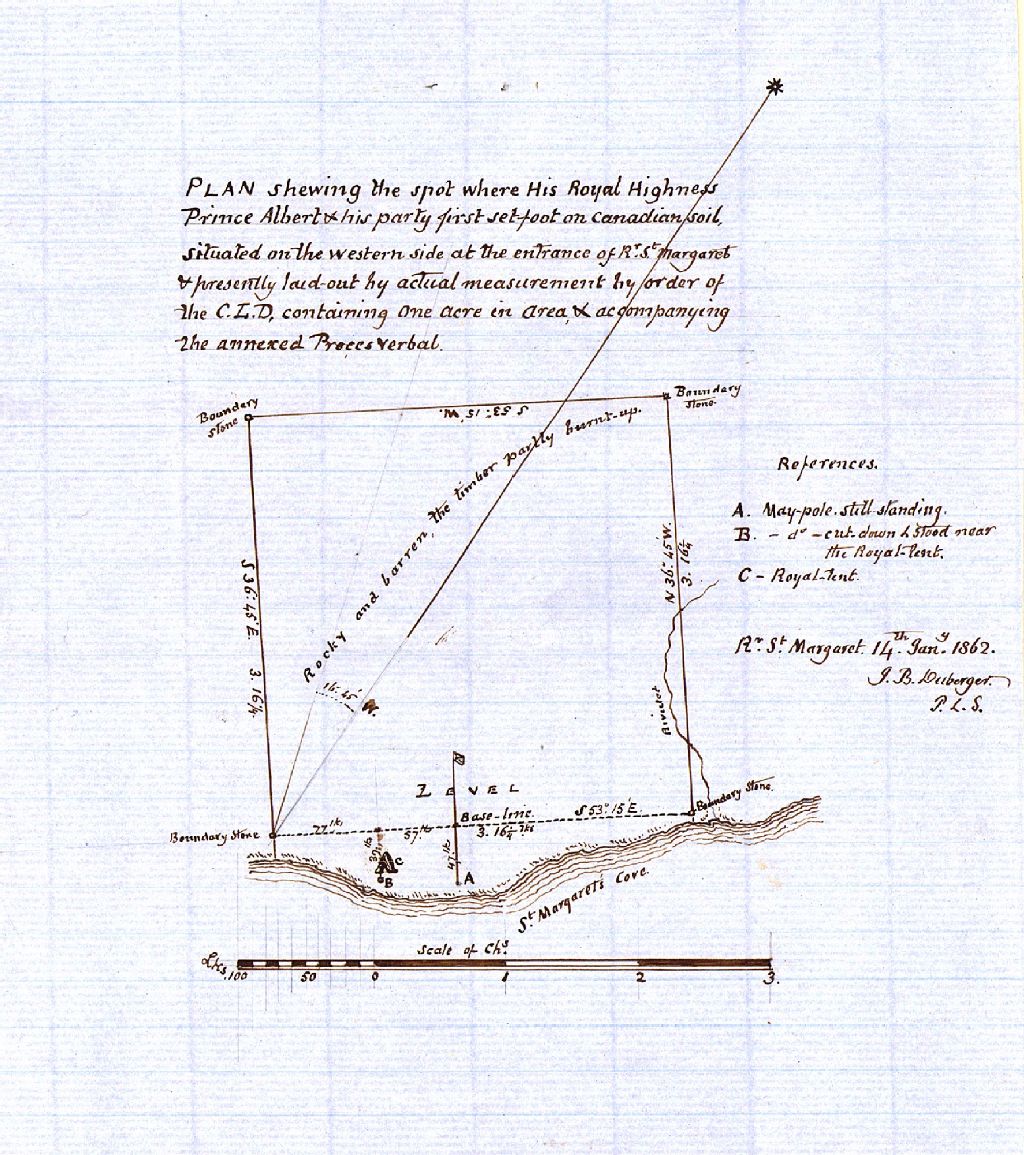 PLAN shewing the spot where His Royal Highness
Prince Albert & his party first set-foot on Canadian soil,
situated on the western side at the entrance of Rr. St Margaret
& presently laid-out by actual measurement by order of
the C.L.D, containing one acre in area, & accompanying
the annexed Procès verbal.
Boundary
Stone
S 53°. 15' W.
Boundary
Stone.
Rocky and barren, the timber partly burnt-up.
References.
A. May-pole. still standing.
B. - do - cut down & stood near
the Royal-tent.
C - Royal-tent.
S 36°. 45' E. 3. 16¼.
N 36°. 45' W.
3. 16¼
Rr. St Margaret. 14th Jany. 1862.
J. B. Duberger.
P. L. S.
16°. 45'
W.
Rivulet
LEVEL
Boundary Stone
77 lks
57 lks
Base-line
3. 16¼ lks
S 53°. 15' E.
Boundary Stone.
47 lk
C
B
A
St Margarets Cove.
Scale of Chs.
Lks. 100 50 0 1 2 3.